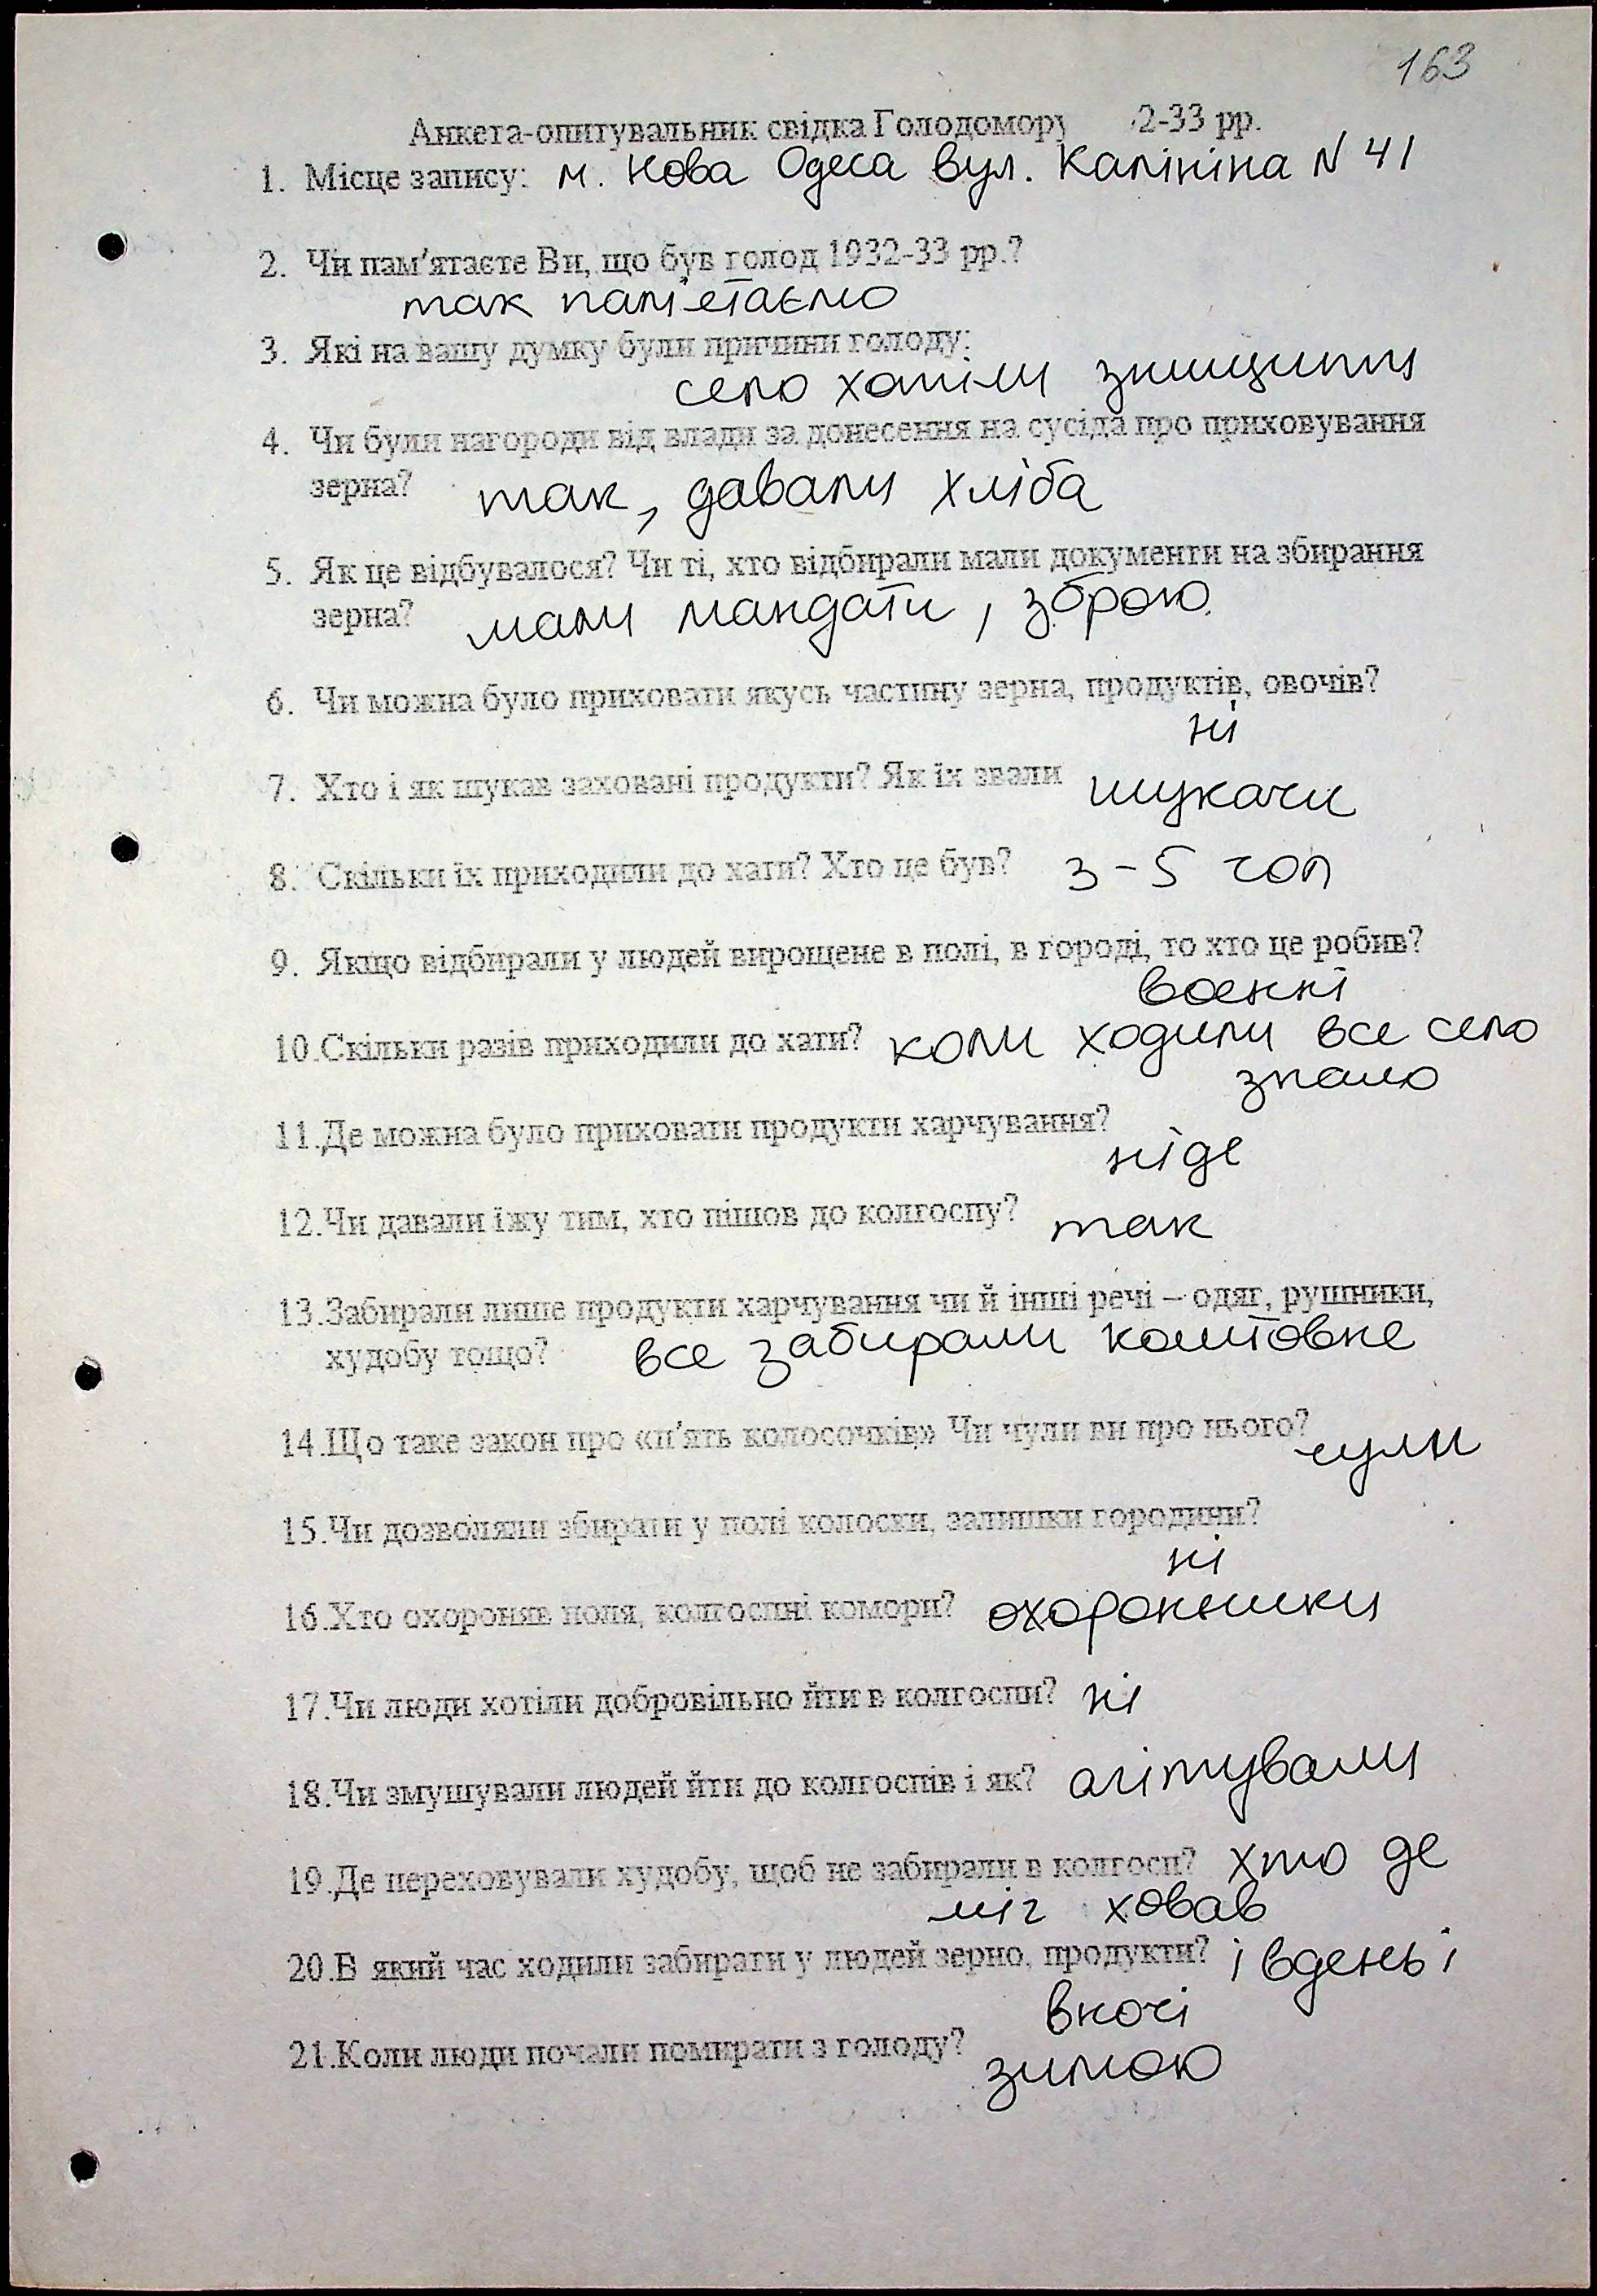 163
Анкета-опитувальник свідка Голодомору 2-33 рр.
1. Місце запису: м. Нова Одеса вул. Калініна N 41
2. Чи пам'ятаєте Ви, що був голод 1932-33 рр.?
так пам'єтаємо
3. Які на вашу думку були причини голоду:
село хотіли знищити
4. Чи були нагороди від влади за донесення на сусіда про приховування
зерна? так, давали хліба
5. Як це відбувалося? Чи ті, хто відбирали мали документи на збирання
зерна? мали мандати, зброю.
6. Чи можна було приховати якусь частину зерна, продуктів, овочів?
ні
7. Хто і як шукав заховані продукти? Як їх звали шукачи
8. Скільки їх приходили до хати? Хто це був? 3-5 чол
9. Якщо відбирали у людей вирощене в полі, в городі, то хто це робив?
воєнні
10.Скільки разів приходили до хати? коли ходили все село
знало
11.Де можна було приховати продукти харчування?
ніде
12.Чи давали їжу тим, хто пішов до колгоспу? так
13.Забирали лише продукти харчування чи й інші речі – одяг, рушники,
худобу тощо? все забирали коштовне
14.Що таке закон про «п'ять колосочків» Чи чули ви про нього? чули
15.Чи дозволяли збирати у полі колоски, залишки городини?
ні
16.Хто охороняв поля, колгоспні комори? охоронники
17.Чи люди хотіли добровільно йти в колгоспи? ні
18.Чи змушували людей йти до колгоспів і як? агітували
19.Де переховували худобу, щоб не забирали в колгосп? хто де
міг ховав
20.В який час ходили забирати у людей зерно, продукти? і вдень і
вночі
21.Коли люди почали помирати з голоду? зимою